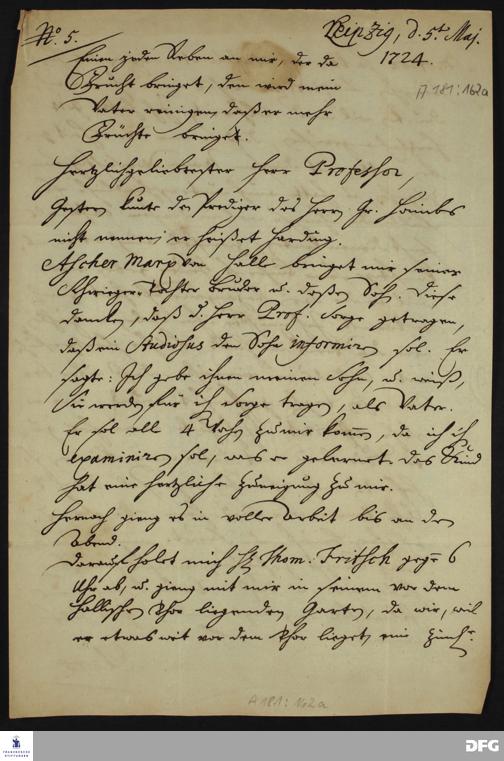 No 5.
Leipzig, d. 5t Maj.
1724.
A 181:162a
Einen jeden Reben an mir, der da
Frucht bringet, den wird mein
Vater reinigen, daß er mehr
Früchte bringet.
Hertzlichgeliebtester Herr Professor,
Gestern kunte den Prediger des Herrn Gr. Hoimbs
nicht nennen, er heißet Harding.
Ascher Marx von Hall bringet mir seinen
Schwieger Tochter Bruder u. deßen Sohn. Diese
dancken, daß d. Herr Prof. Sorge getragen,
daß ein Studiosus den Sohn informiren sol. Er
sagte: Ich gebe ihnen meinen Sohn, u. weiß,
Sie werden für ihn Sorge tragen, als Vater.
Er sol all 4 Wochen zu mir kommen, da ich ihn
examiniren sol, was er gelernet. Das Kind
hat eine hertzliche Zuneigung zu mir.
Hernach gieng es in voller Arbeit bis an den
Abend.
Darauf holet mich H. Thom. Fritsch gegen 6
Uhr ab, u. gieng mit mir in seinen vor dem
Hallischen Thor liegenden Garten, da wir, weil
er etwas weit vor dem Thor lieget, eine
A 181:162a
FRANCKESCHE
STIFTUNGEN
DFG